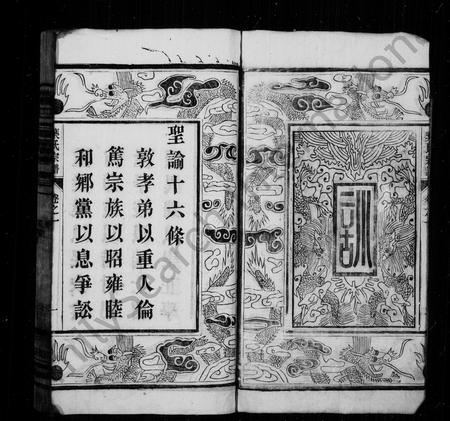 聖諭十六條
敦孝弟以重人倫
篤宗族以昭雍睦
和鄉黨以息爭訟